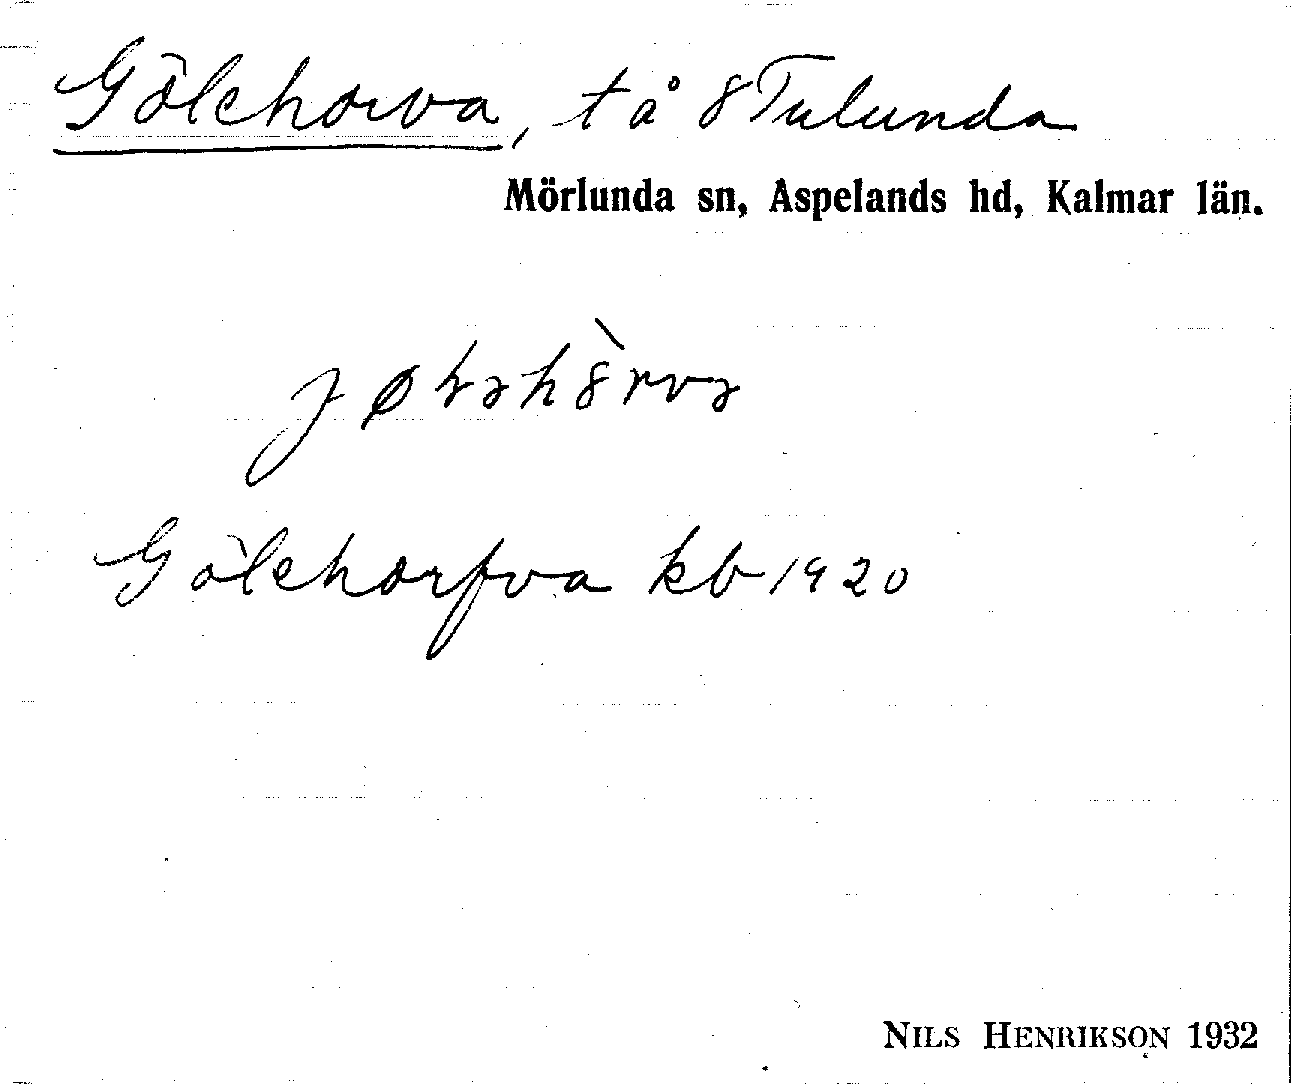 Gölehorva, t å 8 Tulunda
Mörlunda sn, Aspelands hd, Kalmar län.
Gölehorfva kb 1920
NILS HENRIKSON 1932